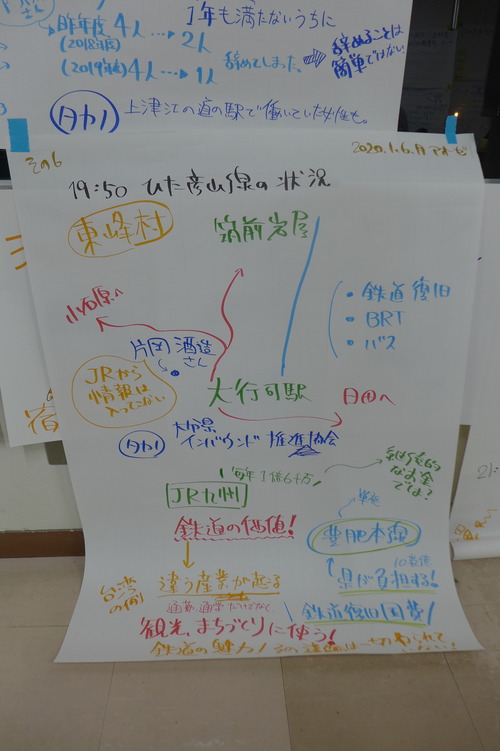 1年も満たないうちに
昨年度 4人…→2人
(2018年度)
(2019年度) 4人…→1人
辞めてしまった。
辞めることは
簡単ではない。
タカ1
上津江の道の駅で働いていた女性も。
その6
2020.1.6.月 アオーゼ
19:50 ひた彦山線の状況
東峰村
筑前岩屋
小石原へ
・鉄道復旧
・BRT
・バス
片岡酒造
さん
JRから
情報は
入ってこない
大行司駅
日田へ
タカ1
大分県
インバウンド推進協会
毎年1億6千万
JR九州
鉄道の価値!
豊肥本線
違う産業が起る
台湾
の例
県が負担する!
通勤、通学だけでなく、
鉄道復旧国費
観光、まちづくりに使う!
鉄道の魅力!